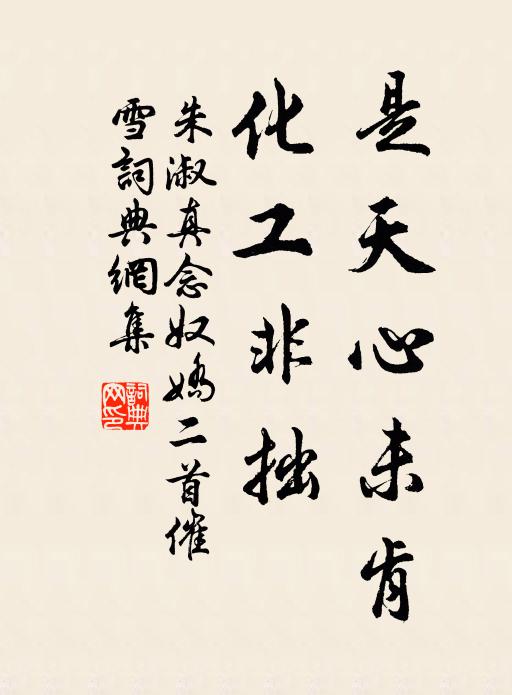 是天心未肯
化工非拙
朱淑真念奴嬌二首催
雪詞典網集
詞典
网印